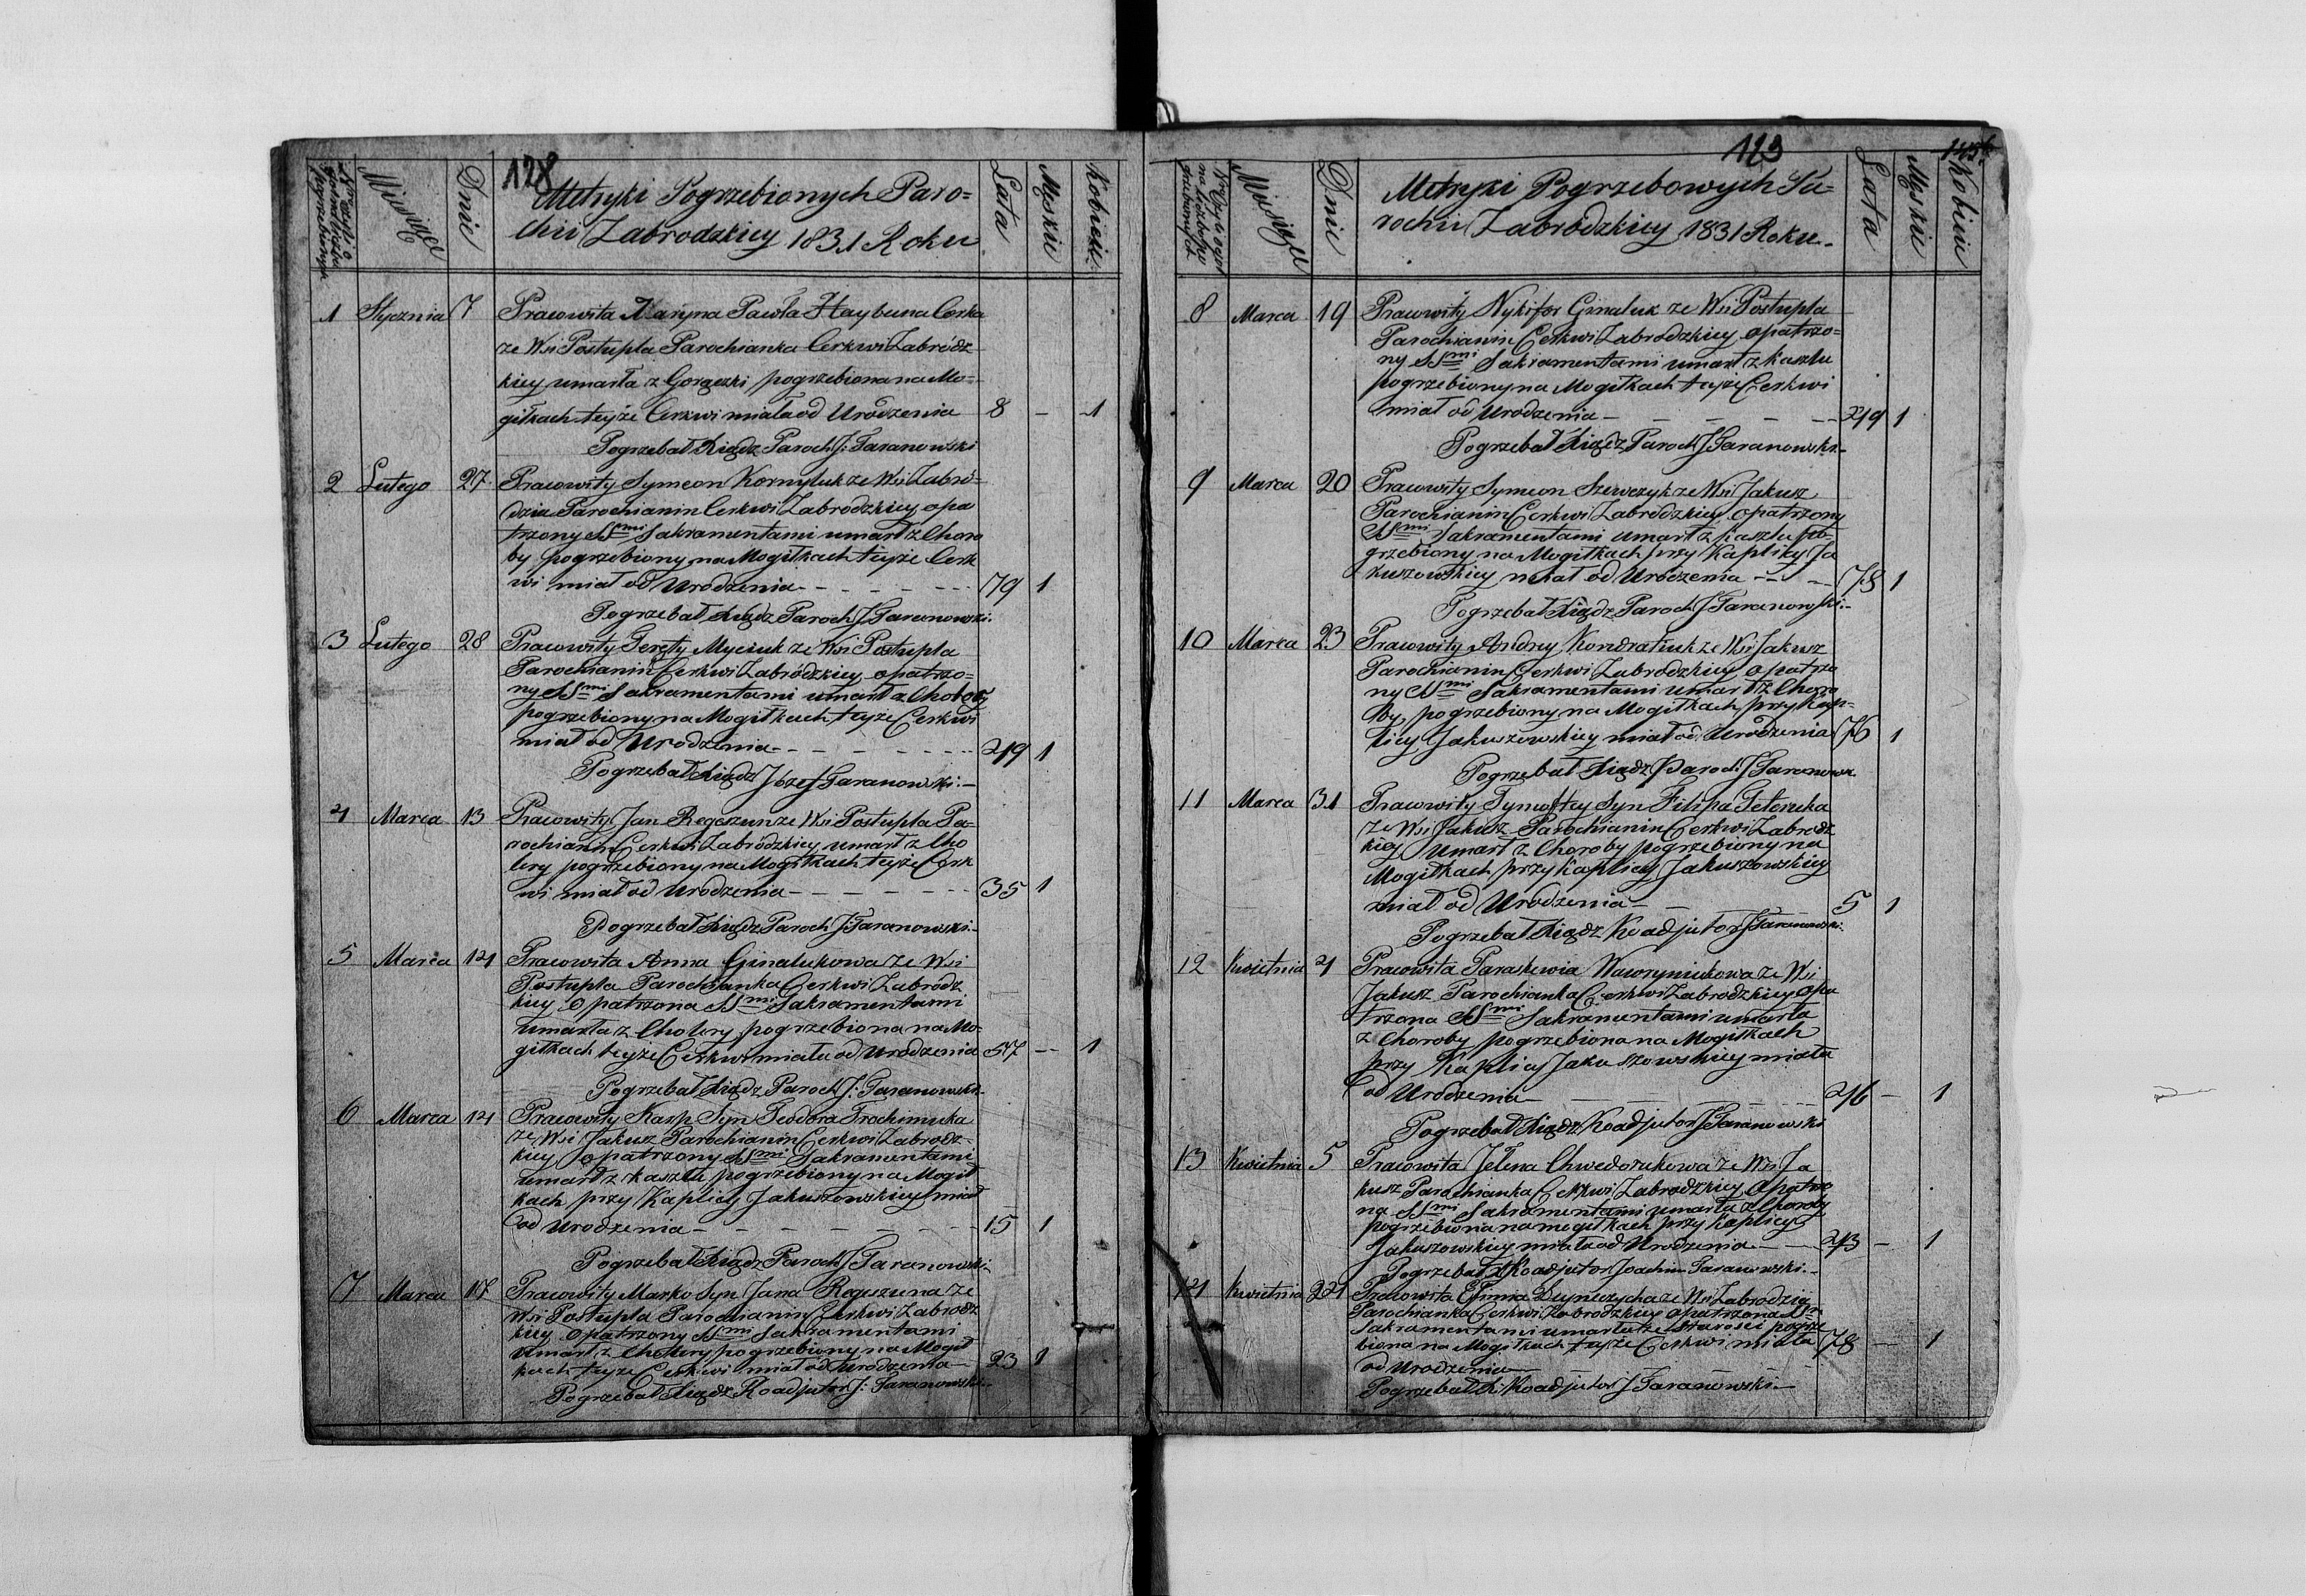 128
Miesiące
Dnie
Metryki Pogrzebionych Paro=
chii Zabrodzkiey 1831 Roku
Lata
Męskie
Kobiece
1 Stycznia 7 Pracowita Maryna Pawła Haybuna Corka
ze Wsi Postupla Parochianka Cerkwi Zabródz
kiey umarła z Gorączki pogrzebiona na Mo=
giłkach teyże Cerkwi miała od Urodzenia 8 — 1
Pogrzebał Xiądz Paroch J: Taranowski
2 Lutego 27 Pracowity Symeon Kornyluk ze Wsi Zabró-
dzia Parochianin Cerkwi Zabrodzkiey opa
trzony SSmi Sakramentami umarł z Choro
by pogrzebiony na Mogiłkach teyże Cerk
wi miał od Urodzenia - - - - - - 79 1
Pogrzebał Xiądz Paroch J Taranowski.
3 Lutego 28 Pracowity Teręty Myciuk ze Wsi Postupla
Parochianin Cerkwi Zabródzkiey opatrzo=
ny SSmi Sakramentami umarł z Choroby
pogrzebiony na Mogiłkach teyże Cerkwi
miał od Urodzenia - - - - - - 49 1
Pogrzebał Xiądz Jozef Taranowski.—
4 Marca 13 Pracowity Jan Regeszun ze Wsi Postupla Pa=
rochianin Cerkwi Zabródzkiey umarł z Cho
lery pogrzebiony na Mogiłkach teyże Cerk
wi miał od Urodzenia - - - - - - 35 1
Pogrzebał Xiądz Paroch J: Taranowski.—
5 Marca 14 Pracowita Anna Ginalukowa ze Wsi
Postupla Parochianka Cerkwi Zabrodz
kiey opatrzona SSmi Sakramentami
umarła z Cholery pogrzebiona na Mo-
giłkach teyże Cerkwi miała od Urodzenia 57 — 1
Pogrzebał Xiądz Paroch J: Taranowski.
6 Marca 14 Pracowity Karp Syn Teodora Trochimuka
ze Wsi Jakusz Parochianin Cerkwi Zabrodz-
kiey opatrzony SSmi Sakramentami
umarł z kaszlu pogrzebiony na Mogił
kach przy Kaplicy Jakuszowskiey miał
od Urodzenia - - - - - - 15 1
Pogrzebał Xiądz Paroch J Taranowski.
7 Marca 17 Pracowity Marko Syn Jana Reguzuna ze
Wsi Postupla Parochianin Cerkwi Zabrodz
kiey opatrzony SSmi Sakramentami
Umarł z Cholery pogrzebiony na Mogił
kach teyże Cerkwi miał od Urodzenia — 23 1
Pogrzebał Xiądz Koadjutor J: Taranowski
Miesiące
Dnie
Metryki Pogrzebowych Pa=
rochii Zabródzkiey 1831 Roku.-
Lata
Męskie
Kobiece
8 Marca 19 Pracowity Nykifor Ginaluk ze Wsi Postupla
Parochianin Cerkwi Zabrodzkiey opatrzo=
ny SSmi Sakramentami umarł z kaszlu
pogrzebiony na Mogiłkach teyże Cerkwi
miał od Urodzenia — — — — — 49 1
Pogrzebał Xiądz Paroch J Taranowski.
9 Marca 20 Pracowity Symeon Szewczyk ze Wsi Jakusz
Parochianin Cerkwi Zabródzkiey opatrzony
SSmi Sakramentami umarł z kaszlu po-
grzebiony na Mogiłkach przy Kaplicy Ja
kuszowskiey miał od Urodzenia — — 78 1
Pogrzebał Xiądz Paroch J Taranowski.-
10 Marca 23 Pracowity Andrey Kondratiuk ze Wsi Jakusz
Parochianin Cerkwi Zabrodzkiey opatrzo
ny SSmi Sakramentami umarł z Choro
by pogrzebiony na Mogiłkach przy Kap-
licy Jakuszowskiey miał od Urodzenia 76 1
Pogrzebał Xiądz Paroch J Taranows.
11 Marca 31 Pracowity Tymoftey Syn Filipa Teteruka
ze Wsi Jakusz Parochianin Cerkwi Zabrodz
kiey Umarł z Choroby pogrzebiony na
Mogiłkach przy Kaplicy Jakuszowskiey
miał od Urodzenia — — 5 1
Pogrzebał Xiądz Koadjutor J Taranowski.
12 Kwietnia 4 Pracowita Paraskewia Wawryniukowa ze Wsi
Jakusz Parochianka Cerkwi Zabrodzkiey opa
trzona SSmi Sakramentami umarła
z Choroby pogrzebiona na Mogiłkach
przy Kaplicy Jakuszowskiey miała
od Urodzenia — — — — 46 — 1
Pogrzebał Xiądz Koadjutor J Taranowski
13 Kwietnia 5 Pracowita Jelena Chwedorukowa ze Wsi Ja
kusz Parochianka Cerkwi Zabrodzkiey opatrzo
na SSmi Sakramentami umarła z Choroby
pogrzebiona na mogiłkach przy Kaplicy
Jakuszowskiey miała od Urodzenia — 43 — 1
Pogrzebał X Koadjutor Joachim Taranowski.-
14 Kwietnia 24 Pracowita ze Wsi Zabrodzia
Parochianka Cerkwi Zabrodzkiey opatrzona SSmi
Sakramentami umarła ze starości pogrze
biona na Mogiłkach teyże Cerkwi miała 78 — 1
od Urodzenia
Pogrzebał X. Koadjutor J Taranowski.—